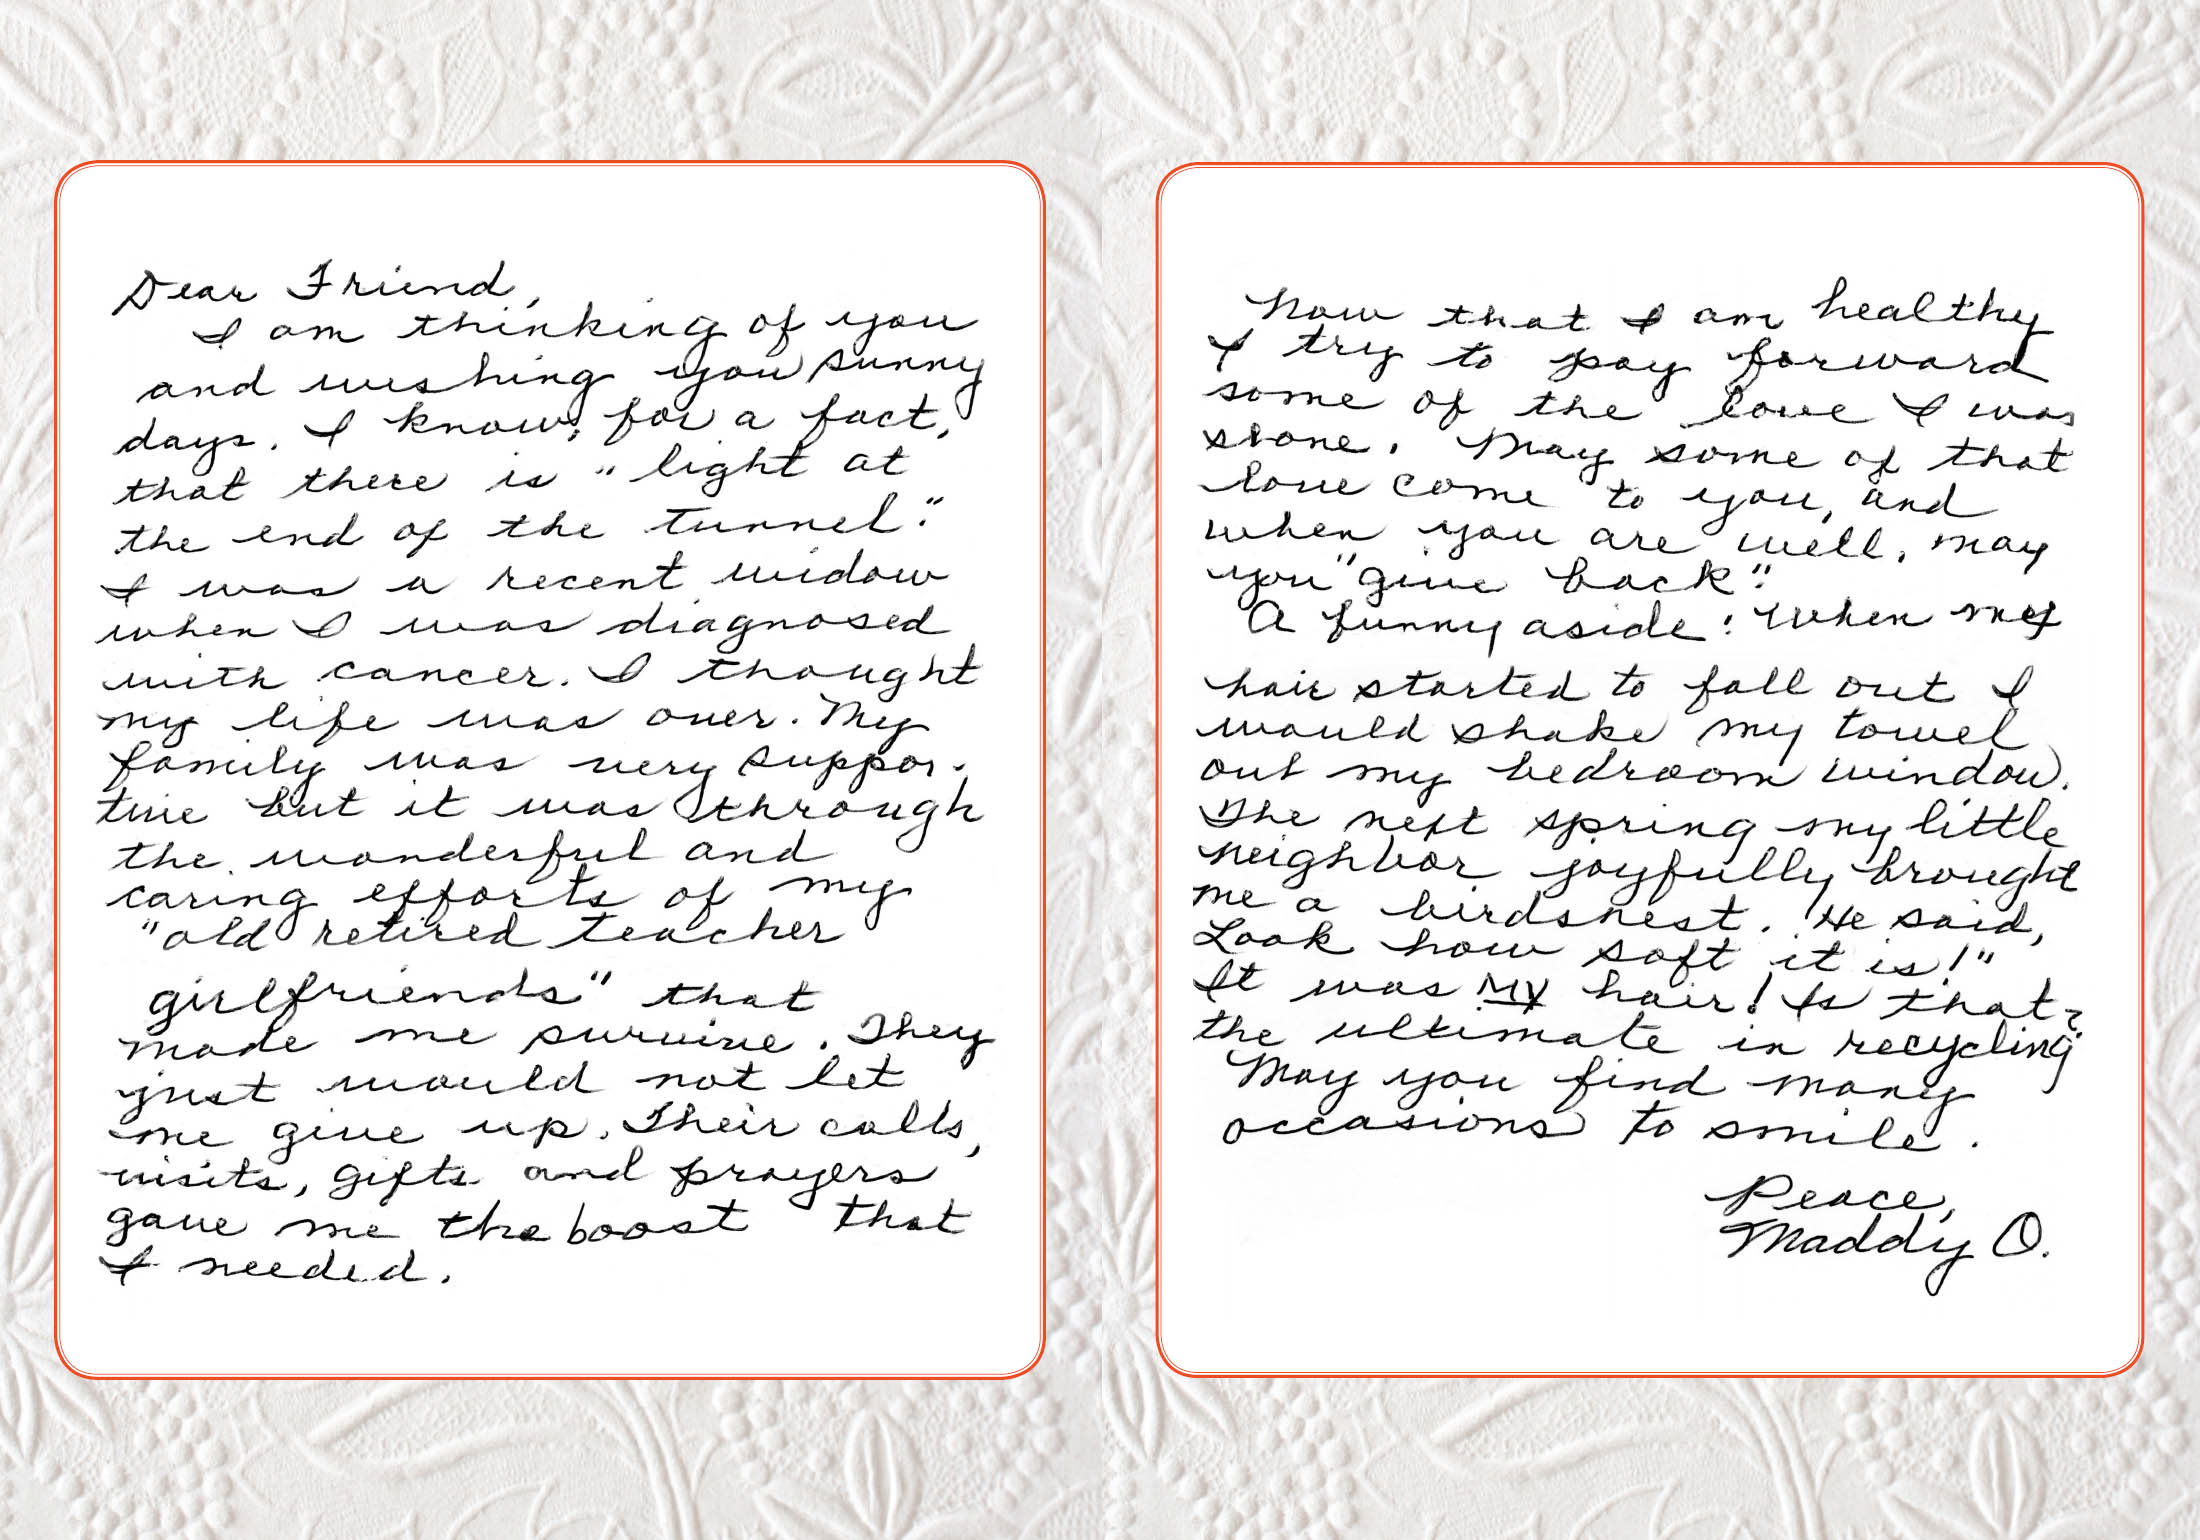 Dear Friend,
I am thinking of you
and wishing you sunny
days. I know, for a fact,
that there is "light at
the end of the tunnel."
I was a recent widow
when I was diagnosed
with cancer. I thought
my life was over. My
family was very suppor-
tive but it was through
the wonderful and
caring efforts of my
"old retired teacher
girlfriends" that
made me survive. They
just would not let
me give up. Their calls,
visits, gifts and prayers
gave me the boost that
I needed.
Now that I am healthy
I try to pay forward
some of the love I was
shone. May some of that
love come to you, and
when you are well, may
you "give back".
A funny aside: When my
hair started to fall out I
would shake my towel
out my bedroom window.
The next spring my little
neighbor joyfully brought
me a birdsnest. He said,
Look how soft it is!"
It was MY hair! Is that
the ultimate in recycling?
May you find many
occasions to smile.
Peace,
Maddy O.